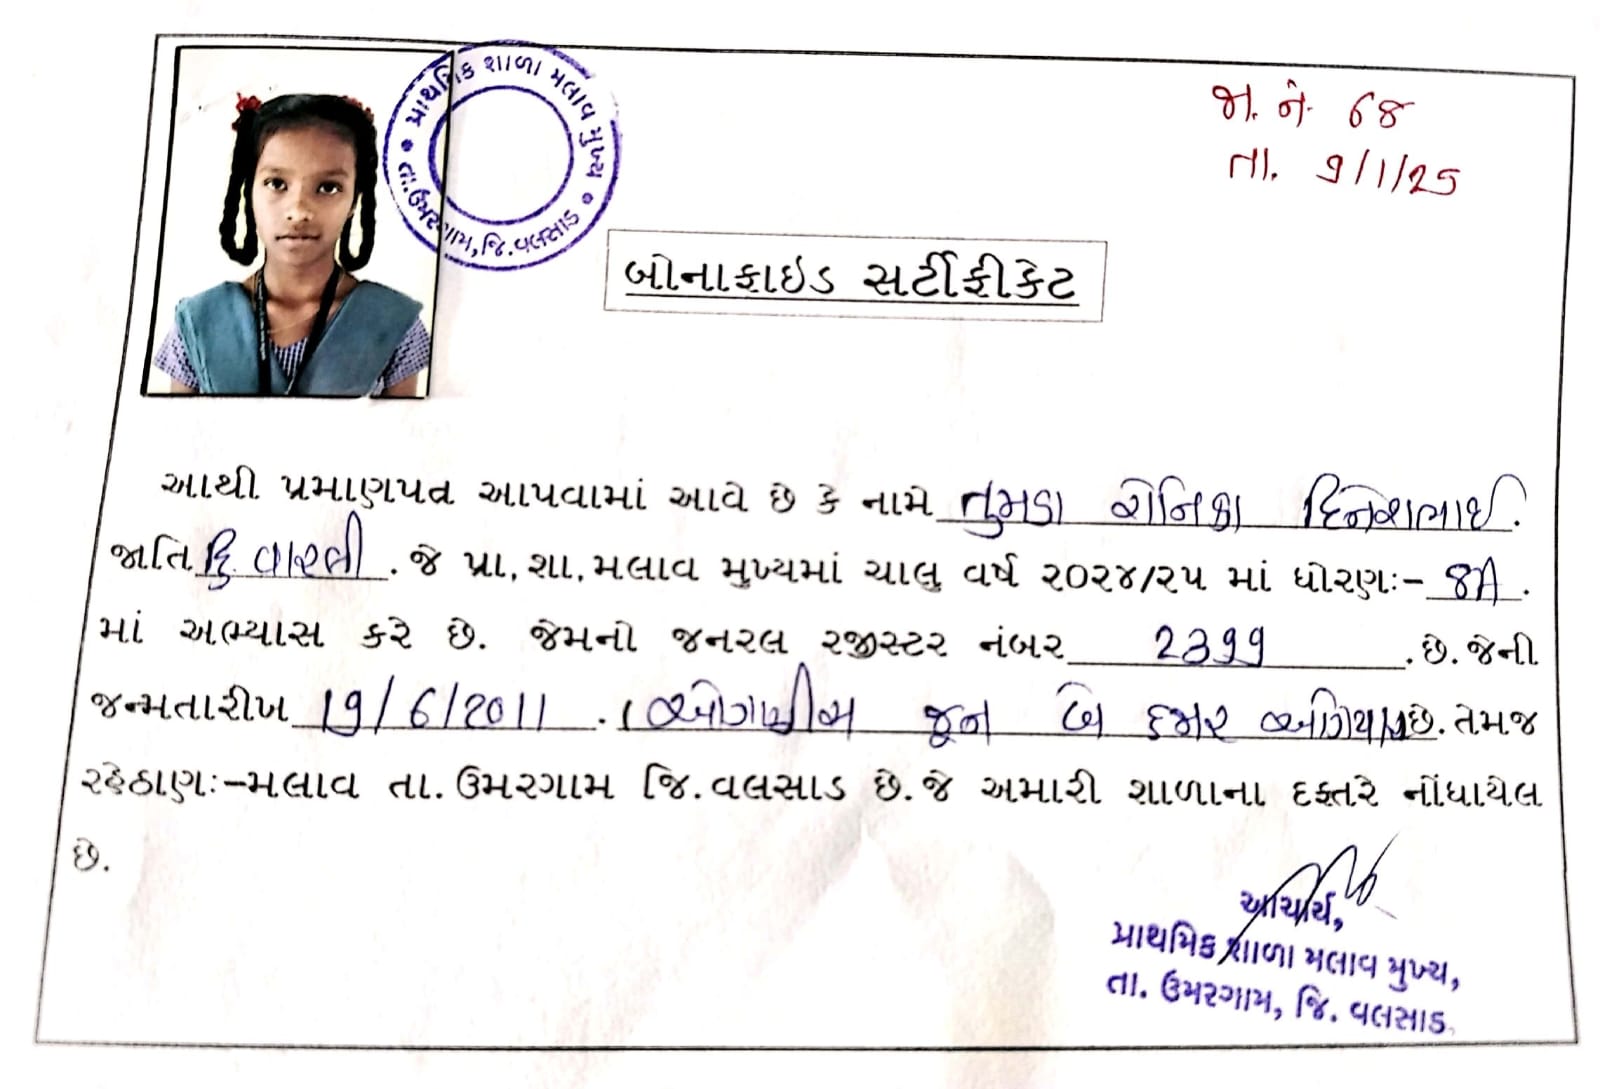 પ્રાથમિક શાળા મલાવ મુખ્ય
તા.ઉમરગામ, જિ.વલસાડ
જા. નં. 68
તા. 9/1/25
બોનાફાઇડ સર્ટીફીકેટ
આથી પ્રમાણપત્ર આપવામાં આવે છે કે નામે તુમડા રોનિકા દિનેશભાઈ.
જાતિ હિ વારલી . જે પ્રા.શા.મલાવ મુખ્યમાં ચાલુ વર્ષ ૨૦૨૪/૨૫ માં ધોરણઃ- 8A .
માં અભ્યાસ કરે છે. જેમનો જનરલ રજીસ્ટર નંબર 2399 .છે.જેની
જન્મતારીખ 19/6/2011 . (ઓગણીસ જૂન બે હજાર અગિયાર છે. તેમજ
રહેઠાણઃ-મલાવ તા.ઉમરગામ જિ.વલસાડ છે.જે અમારી શાળાના દફતરે નોંધાયેલ
છે.
આચાર્ય,
પ્રાથમિક શાળા મલાવ મુખ્ય,
તા. ઉમરગામ, જિ. વલસાડ.